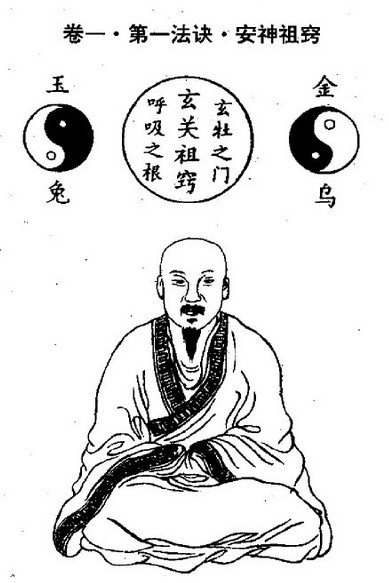 卷一·第一法诀·安神祖窍
金乌
玄牡之门
玄关祖窍
呼吸之根
玉兔